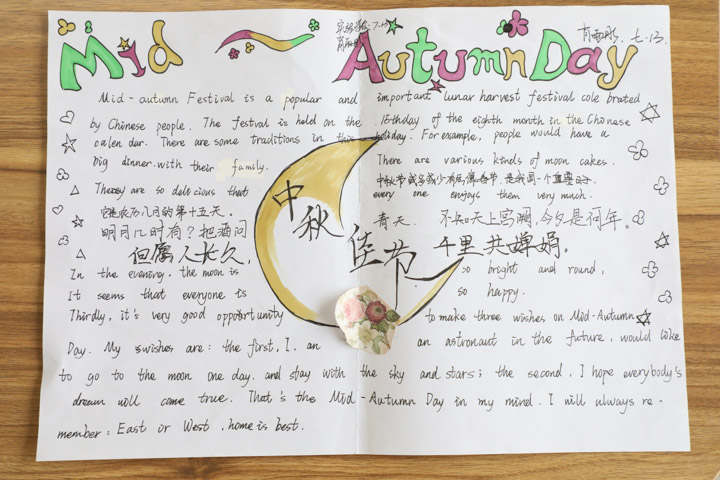 Mid Autumn Day
七.13.
Mid-autumn Festival is a popular and important lunar harvest festival cole brated
by Chinese people. The festival is held on the 15thday of the eighth month in the Chinese
calen dar. There are some traditions in this holiday. For example, people would have a
big dinner with their family. There are various kinds of moon cakes.
They are so delicious that every one enjoys them very much.
农历八月的第十五天。
明月几时有？把酒问青天。不知天上宫阙，今夕是何年。
但愿人长久，千里共婵娟。
中秋佳节
In the evening. the moon is so bright and round,
It seems that everyone is so happy.
Thirdly, it's very good opportunity to make three wishes on Mid-Autumn
Day. My swishes are: the first, I. an an astronaut in the future, would like
to go to the moon one day. and stay with the sky and stars; the second, I hope everybody's
dream will come true. That's the Mid-Autumn Day in my mind. I will always re-
member: East or West, home is best.